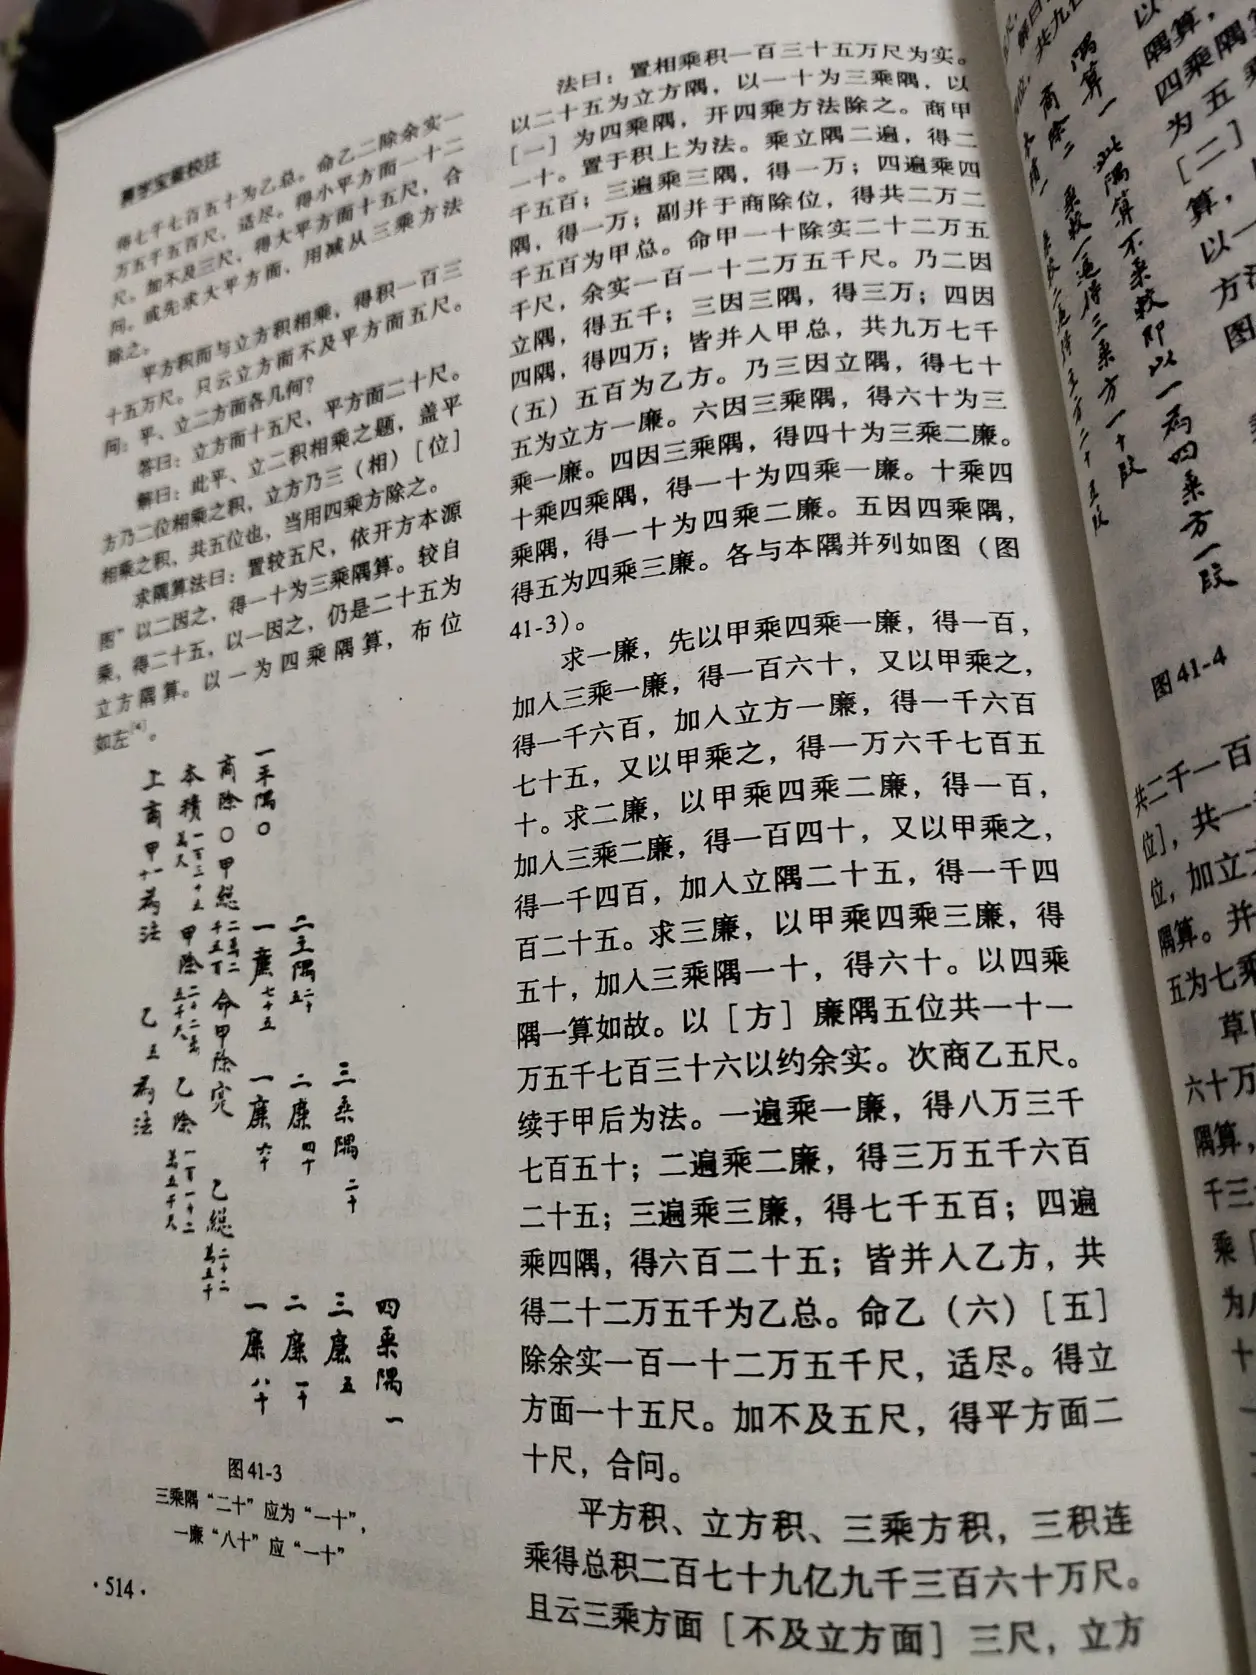 算学宝鉴校注
得七千七百五十为乙总。命乙二除余实一
万五千五百尺，适尽。得小平方面一十二
尺。加不及三尺，得大平方面十五尺，合
问。或先求大平方面，用减从三乘方法
除之。
平方积而与立方积相乘，得积一百三
十五万尺。只云立方面不及平方面五尺。
问：平、立二方面各几何？
答曰：立方面十五尺，平方面二十尺。
解曰：此平、立二积相乘之题，盖平
方乃二位相乘之积，立方乃三（相）［位］
相乘之积，共五位也，当用四乘方除之。
求隅算法曰：置较五尺，依开方本源
图”以二因之，得一十为三乘隅算。较自
乘，得二十五，以一因之，仍是二十五为
立方隅算。以一为四乘隅算，布位
如左[*]。
一平隅〇
商除〇甲总二万二千五百 命甲除完 乙总二十二万五千
本积一百三十五万尺 甲除二十二万五千尺 乙除一百一十二万五千尺
上商甲一十为法 乙五为法
二立隅二十五
一廉七十五
三乘隅二十
二廉四十
一廉六十
四乘隅一
三廉五
二廉一十
一廉八十
图41-3
三乘隅“二十”应为“一十”，
一廉“八十”应“一十”
·514·
法曰：置相乘积一百三十五万尺为实。
以二十五为立方隅，以一十为三乘隅，以
［一］为四乘隅，开四乘方法除之。商甲
一十。置于积上为法。乘立隅二遍，得二
千五百；三遍乘三隅，得一万；四遍乘四
隅，得一万；副并于商除位，得共二万二
千五百为甲总。命甲一十除实二十二万五
千尺，余实一百一十二万五千尺。乃二因
立隅，得五千；三因三隅，得三万；四因
四隅，得四万；皆并入甲总，共九万七千
（五）五百为乙方。乃三因立隅，得七十
五为立方一廉。六因三乘隅，得六十为三
乘一廉。四因三乘隅，得四十为三乘二廉。
十乘四乘隅，得一十为四乘一廉。十乘四
乘隅，得一十为四乘二廉。五因四乘隅，
得五为四乘三廉。各与本隅并列如图（图
41-3）。
求一廉，先以甲乘四乘一廉，得一百，
加入三乘一廉，得一百六十，又以甲乘之，
得一千六百，加入立方一廉，得一千六百
七十五，又以甲乘之，得一万六千七百五
十。求二廉，以甲乘四乘二廉，得一百，
加入三乘二廉，得一百四十，又以甲乘之，
得一千四百，加入立隅二十五，得一千四
百二十五。求三廉，以甲乘四乘三廉，得
五十，加入三乘隅一十，得六十。以四乘
隅一算如故。以［方］廉隅五位共一十一
万五千七百三十六以约余实。次商乙五尺。
续于甲后为法。一遍乘一廉，得八万三千
七百五十；二遍乘二廉，得三万五千六百
二十五；三遍乘三廉，得七千五百；四遍
乘四隅，得六百二十五；皆并入乙方，共
得二十二万五千为乙总。命乙（六）［五］
除余实一百一十二万五千尺，适尽。得立
方面一十五尺。加不及五尺，得平方面二
十尺，合问。
平方积、立方积、三乘方积，三积连
乘得总积二百七十九亿九千三百六十万尺。
且云三乘方面［不及立方面］三尺，立方
隅算一 此隅算不乘较即以一为四乘方一段
图41-4
共二千一百
位］，共一
位，加立方
隅算。并
五为七乘
六十万
隅算，